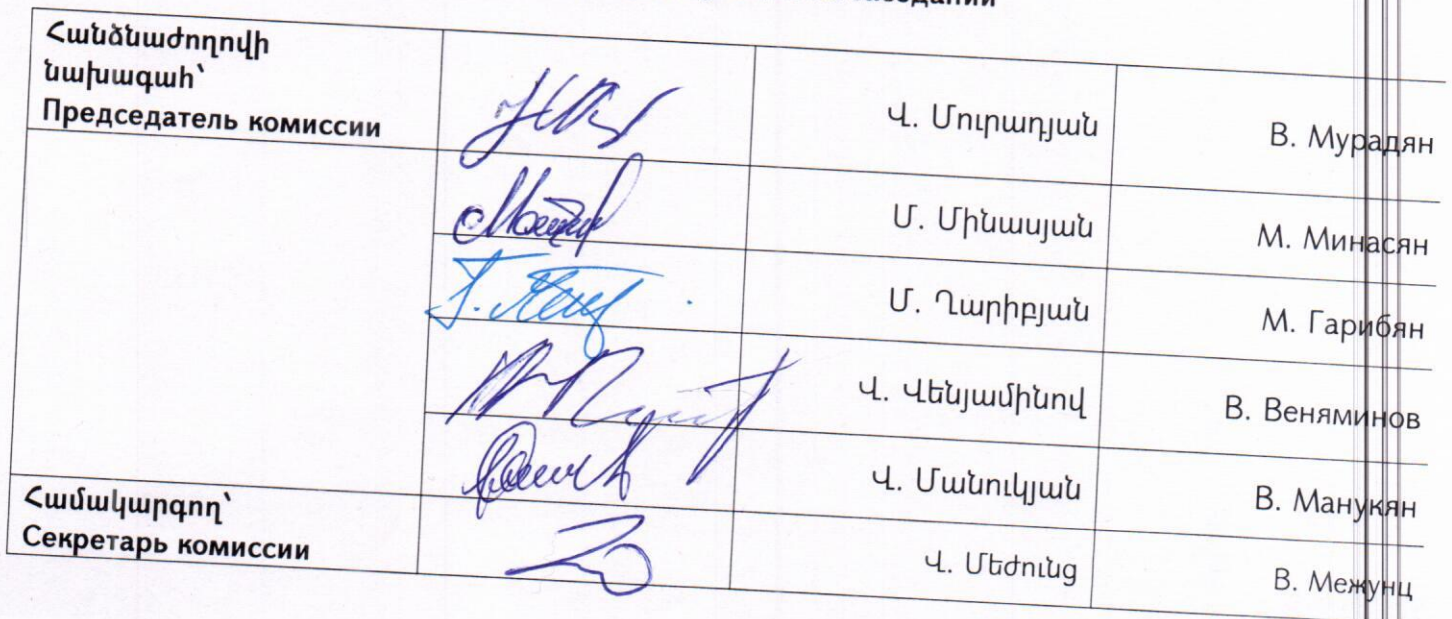 Հանձնաժողովի
նախագահ՝
Председатель комиссии
Վ. Մուրադյան
В. Мурадян
Մ. Մինասյան
М. Минасян
Մ. Ղարիբյան
М. Гарибян
Վ. Վենյամինով
В. Веняминов
Վ. Մանուկյան
В. Манукян
Համակարգող՝
Секретарь комиссии
Վ. Մեժունց
В. Межунц